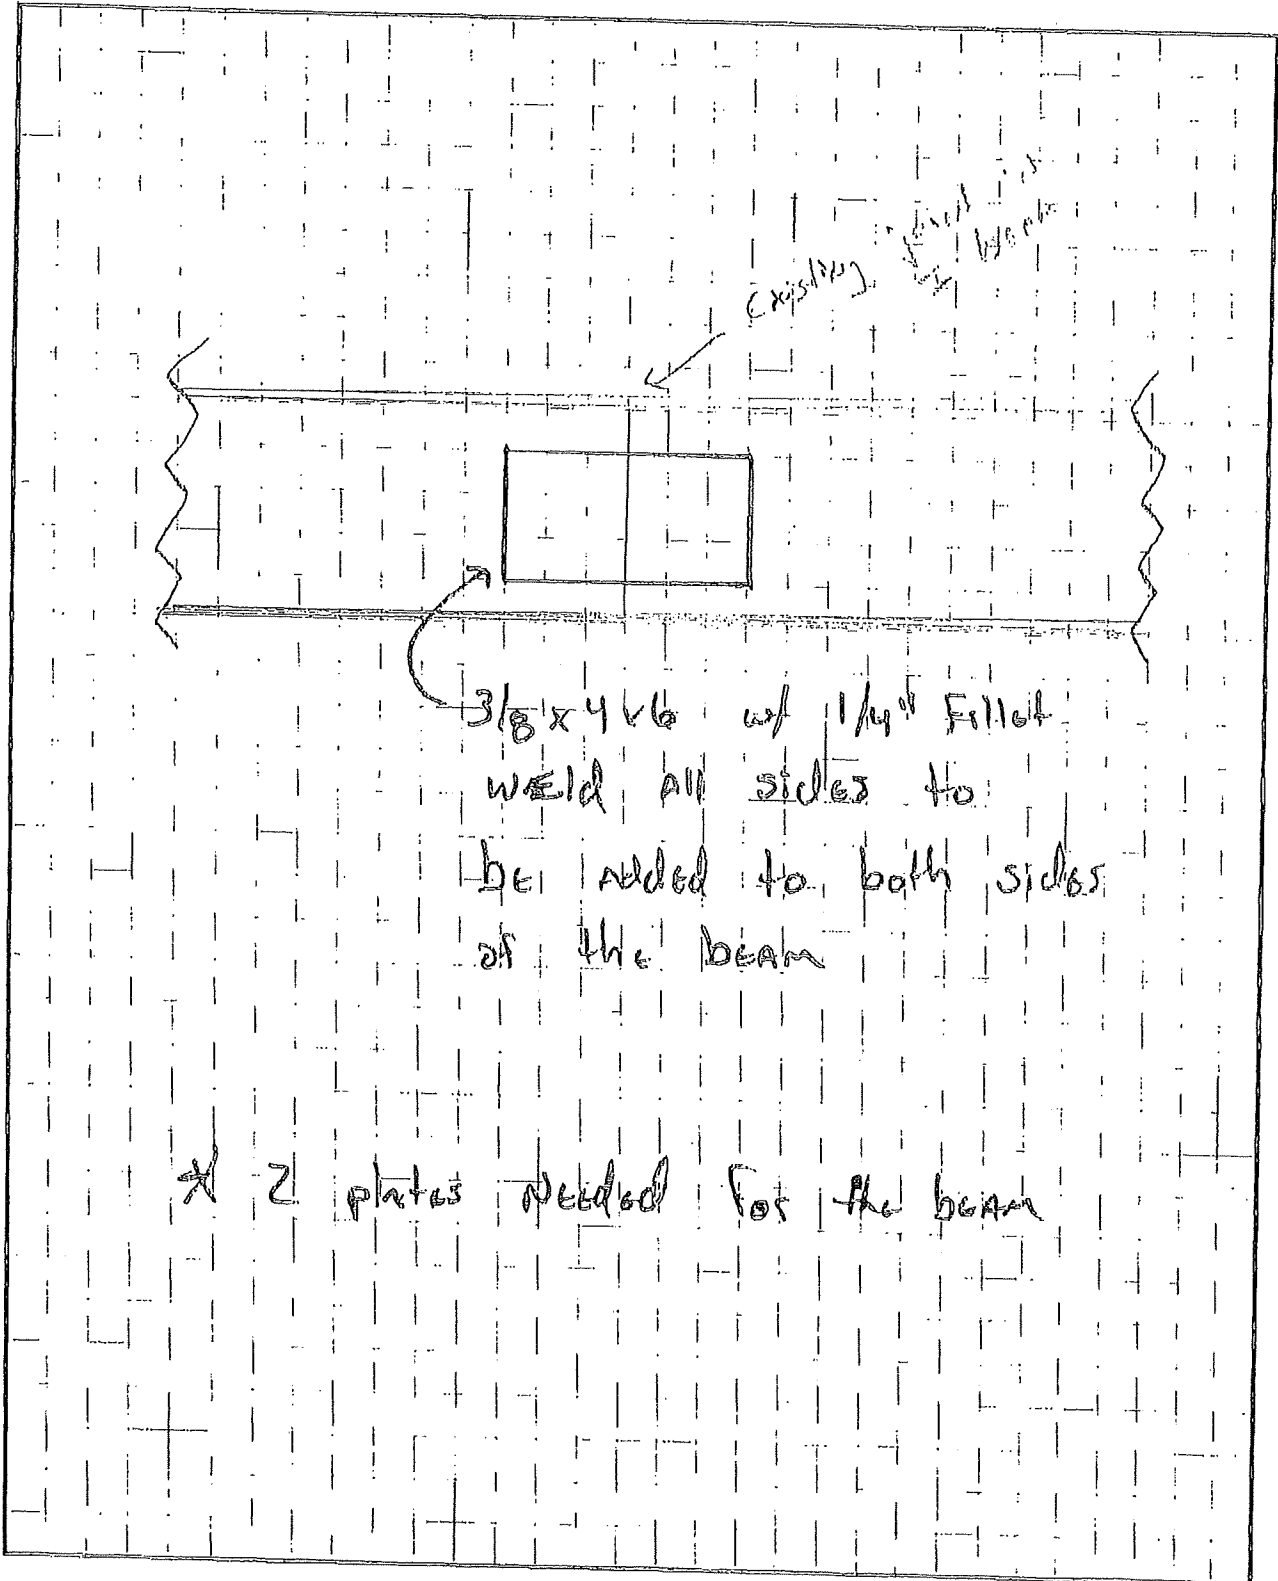 Existing
I beam
3/8 x 4 x 6 w/ 1/4" Fillet
WELd All sides to
bE Added to both sides
of the bEAM
* 2 plates NEEdEd for the bEAM